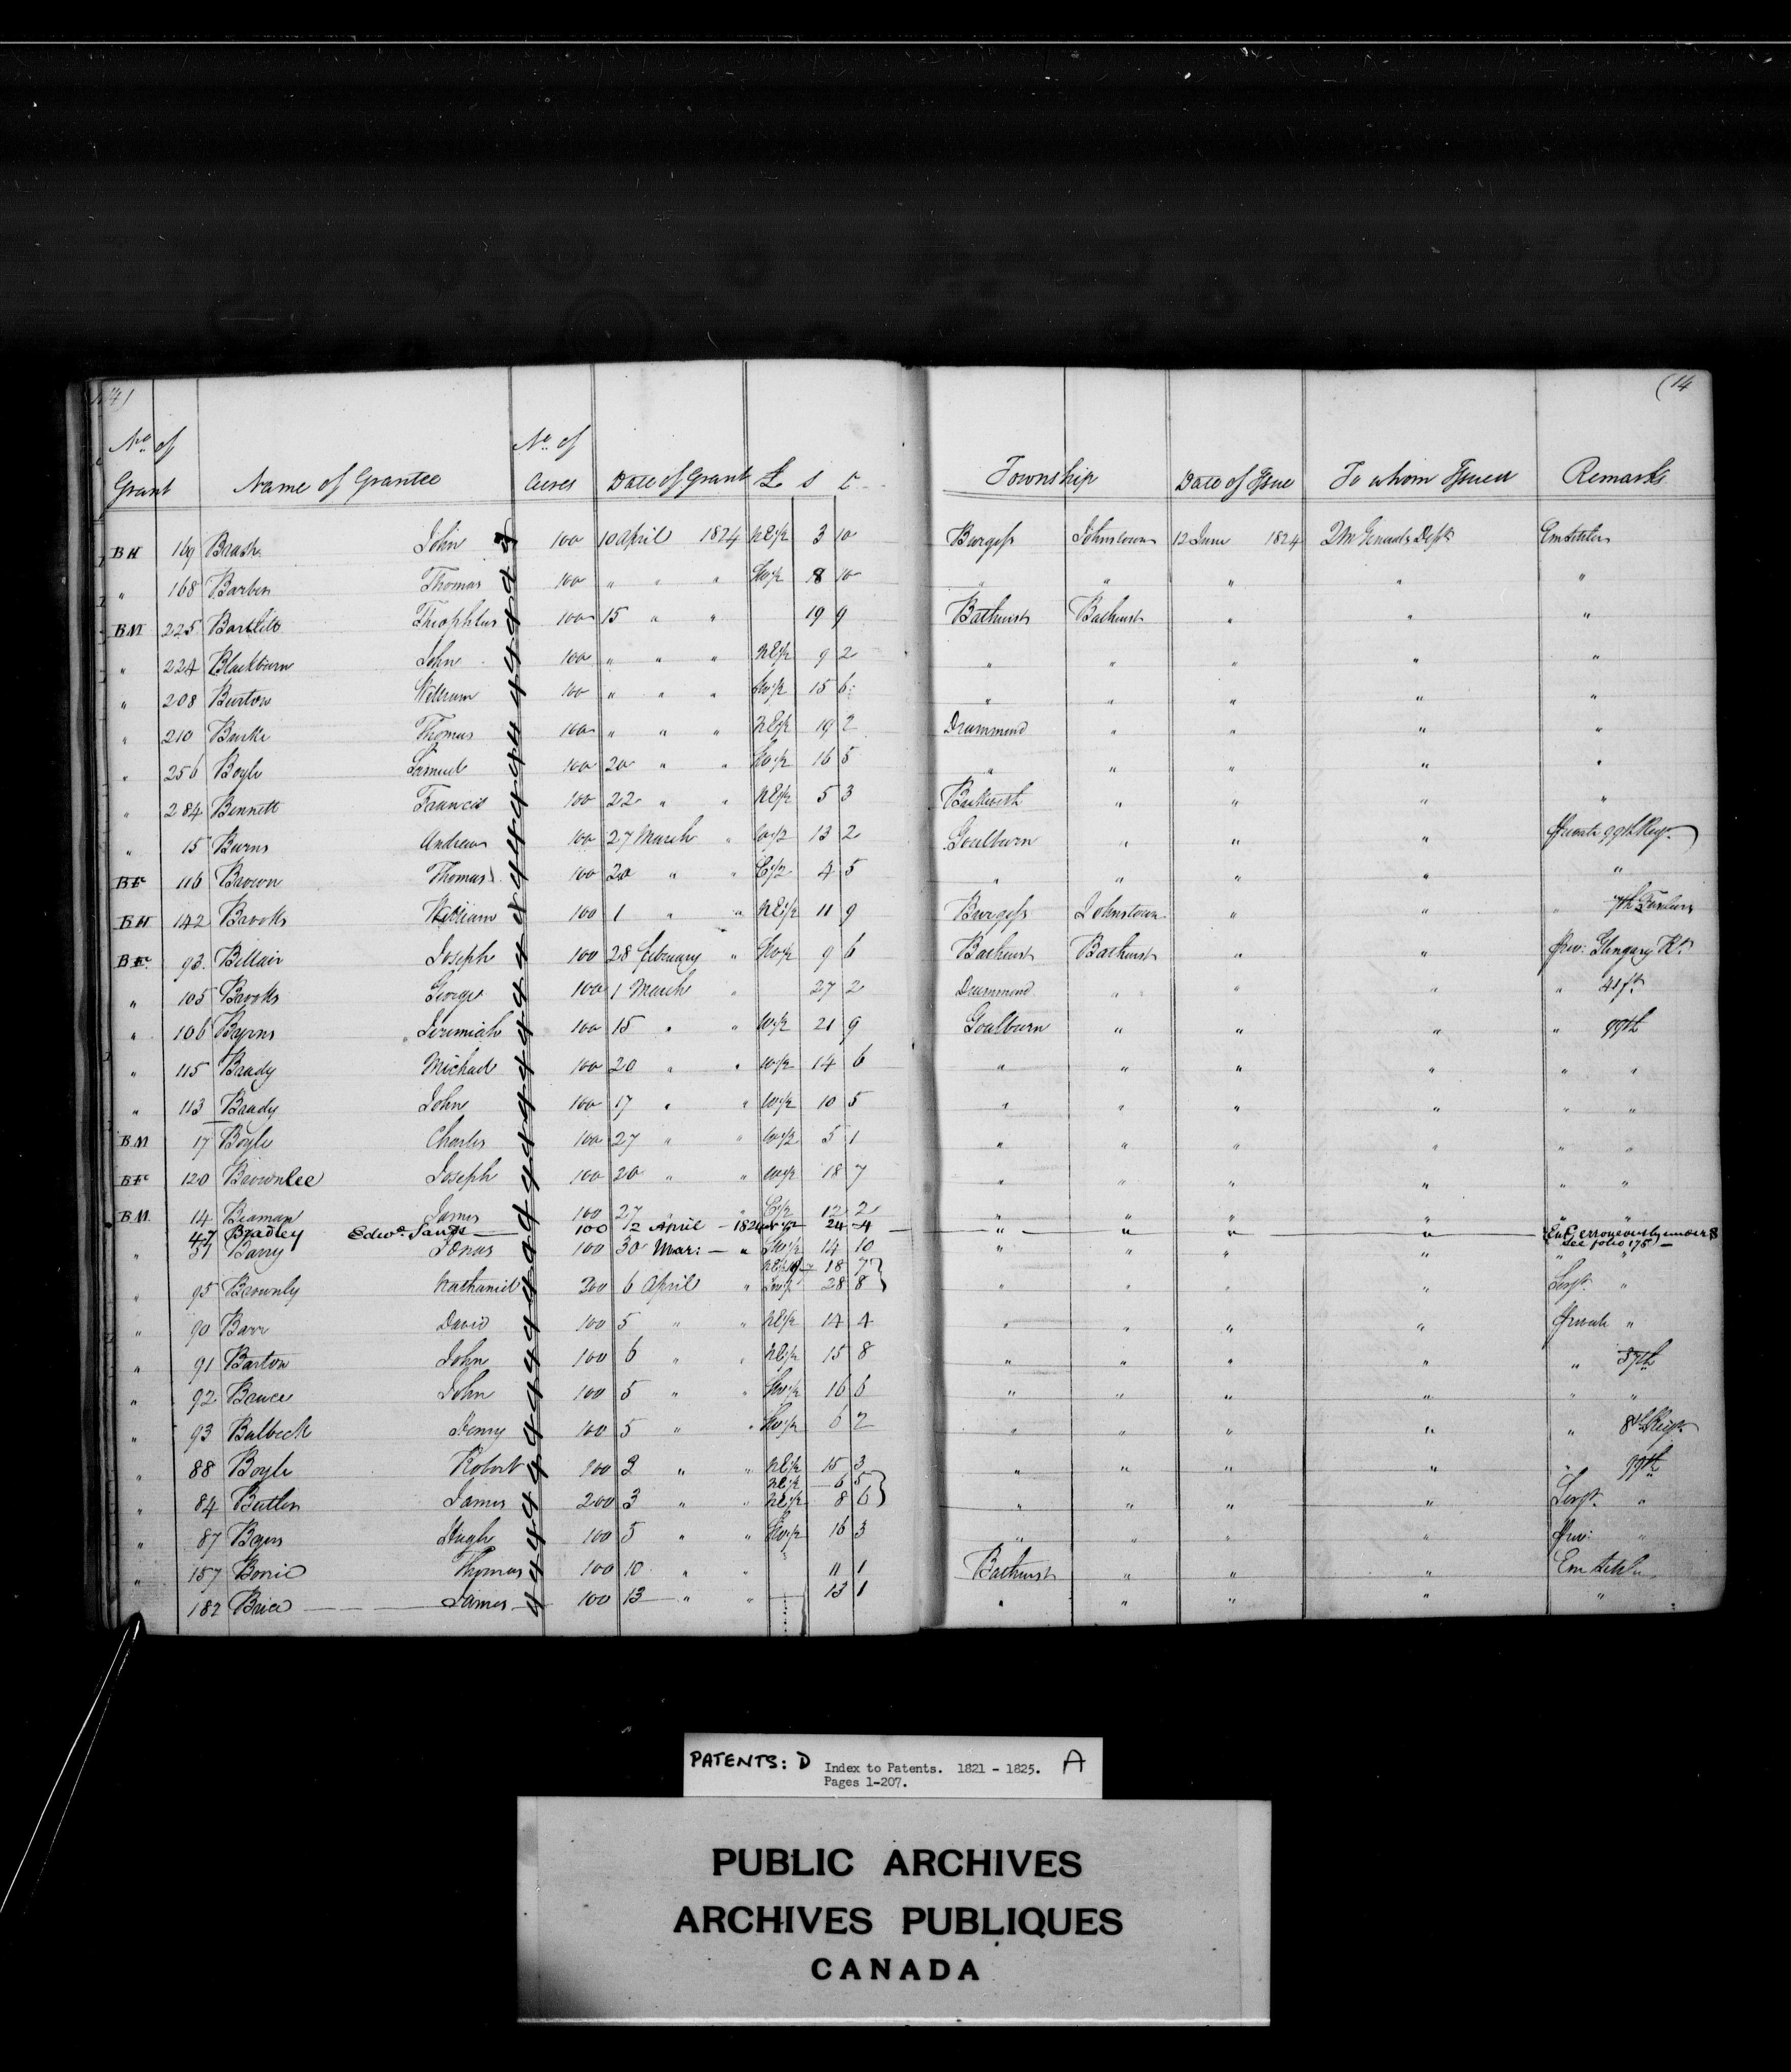 (14
No. of Grant Name of Grantee No. of Acres Date of Grant £ s c Township Date of Issue To whom Issued Remarks
BH 169 Brash John 100 10 April 1824 NE½ 3 10 Burgess Johnstown 12 June 1824 QM Generals Dept
" 168 Barber Thomas 4 100 " " " SW½ 8 10 " " " " "
BM 225 Bartlett Theophilus 4 100 15 " " 19 9 Bathurst Bathurst " " "
" 224 Blackburn John 4 100 " " " NE½ 9 2 " " " " "
" 208 Burton William 4 100 " " " SW½ 15 6 " " " " "
" 210 Burke Thomas 4 100 " " " NE½ 19 2 Drummond " " " "
" 256 Boyle Samuel 4 100 20 " " SW½ 16 5 " " " " "
" 284 Bennett Francis 4 100 22 " " NE½ 5 3 " " " "
" 15 Burns Andrew 4 100 27 March " W½ 13 2 Goulburn " " " Private 99th Regt.
BF 116 Brown Thomas 4 100 20 " " E½ 4 5 " " " " "
BH 142 Brooks William 100 1 " " NE½ 11 9 Burgess Johnstown " " "
BF 93 Bellair Joseph 4 100 28 February " SW½ 9 6 Bathurst Bathurst " " Priv: Glengary
" 105 Brooks George 4 100 1 March " 27 2 Drummond " " " " 41st
" 106 Byrns Jeremiah 4 100 15 " " W½ 21 9 Goulburn " " " " 99th
" 115 Brady Michael 4 100 20 " " W½ 14 6 " " " " " "
" 113 Brady John 4 100 17 " " W½ 10 5 " " " " " "
BM 17 Boyle Charles 4 100 27 " " W½ 5 1 " " " " " "
BF 120 Brownlee Joseph 4 100 20 " " W½ 18 7 " " " " " "
BM 14 Beaman James 4 100 27 " " E½ 12 2 " " " " " "
47 Bradley Edwd. Sands 100 12 April – 1824 24 4 – " – " " " Ent. erroneously under S
see folio 175 –
" 51 Barry Jonas 4 100 30 Mar: – " SW½ 14 10 " " " " " "
18 7
" 95 Brownly Nathaniel 4 200 6 April " SW½ 28 8 } " " " " Sergt. "
" 90 Barr David 4 100 5 " " NE½ 14 4 " " " " Private "
" 91 Barton John 4 100 6 " " NE½ 15 8 " " " " " 37th
" 92 Bruce John 4 100 5 " " SW½ 16 6 " " " " " "
" 93 Bulbeck Henry 4 100 5 " " SW½ 6 2 " " " " " 8th Regt
" 88 Boyle Robert 4 100 3 " " NE½ 15 3 " " " " " 99th
NE½ 6 5
" 84 Butler James 4 200 3 " " NE½ 8 6 } " " " " Sergt. "
" 87 Byers Hugh 4 100 5 " " SW½ 16 3 " " " " Priv: "
" 157 Thomas 4 100 10 " " " 11 1 Bathurst " " "
182 Brice James 4 100 13 " " 13 1 " " " " "
PATENTS: D Index to Patents. 1821 - 1825. A
Pages 1-207.
PUBLIC ARCHIVES
ARCHIVES PUBLIQUES
CANADA